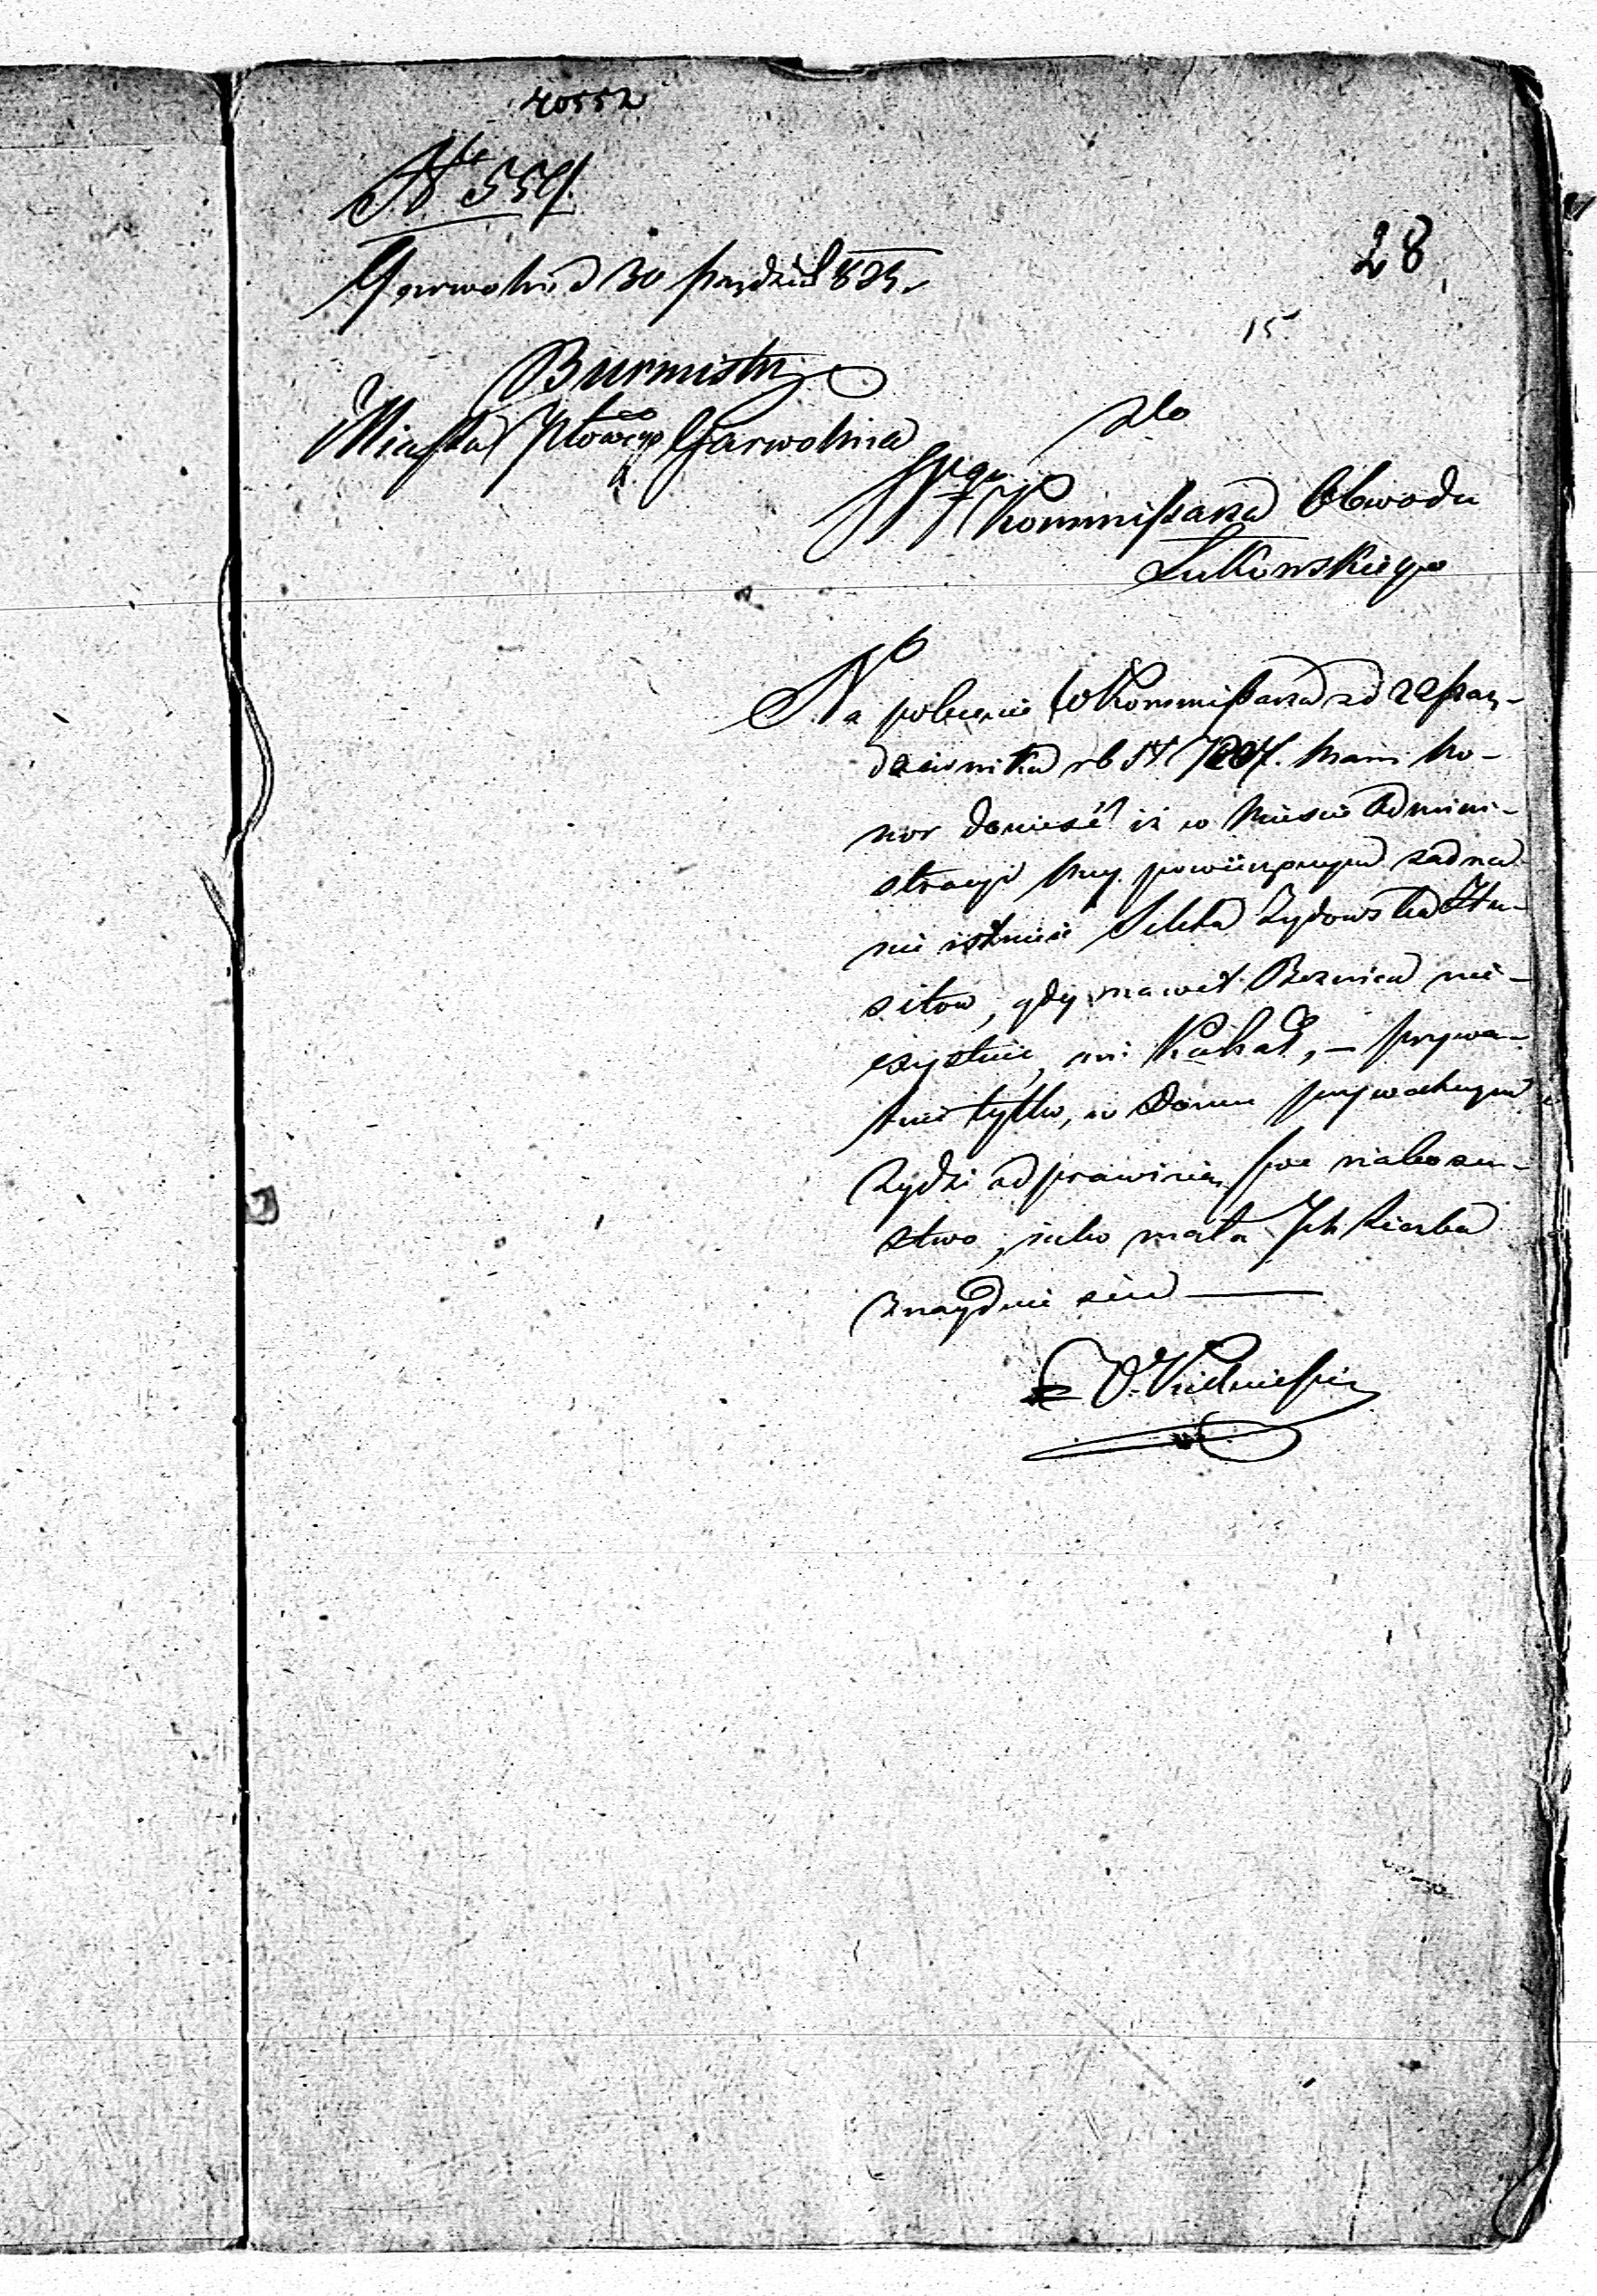 40552
Nro 554.
28
Garwolin d 30 Paździer 825.
15
Burmistrz
Miasta Rządowego Garwolina
Do
Wgo Kommissarza Obwodu
Łukowskiego
Na polecenie W Kommissarza z d 22 Paz-
dziernika r b N 7207. mam ho-
nor donieść iż w Mieście Admini-
stracyi mey powierzonym żadna
nie istnieie Sekta Zydowska Hu-
sitow, gdy nawet Boznica nie-
exystuie, ani Kahał, – prywa-
tnie tylko, w Domu prywatnym
Zydzi odprawiaią swe nabożeń-
stwo, iako mała Ich liczba
znayduie sie